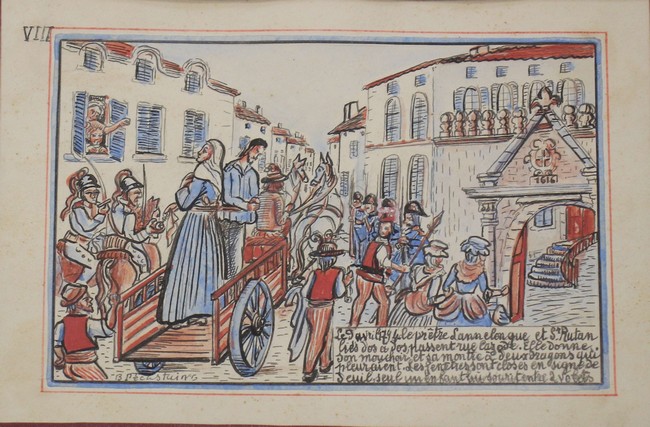 VIII
1616
Le 9 avril 1794 le prêtre Lannelongue et
liés dos à dos passent rue Elle donne
son mouchoir et sa montre à deux dragons qui
pleuraient. Les fenêtres sont closes en signe de
deuil, seul un enfant lui sourit entre 2 volets